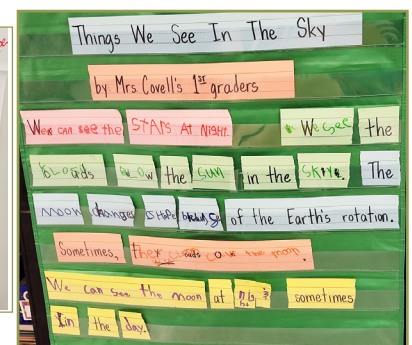 Things We See In The Sky
by Mrs. Covell's 1ST graders
We can see the STARS At NIGHt. We see the
the SUN in the SKY. The
moon changes because of the Earth's rotation.
Sometimes, they the moon.
We can see the moon at sometimes
in the day.